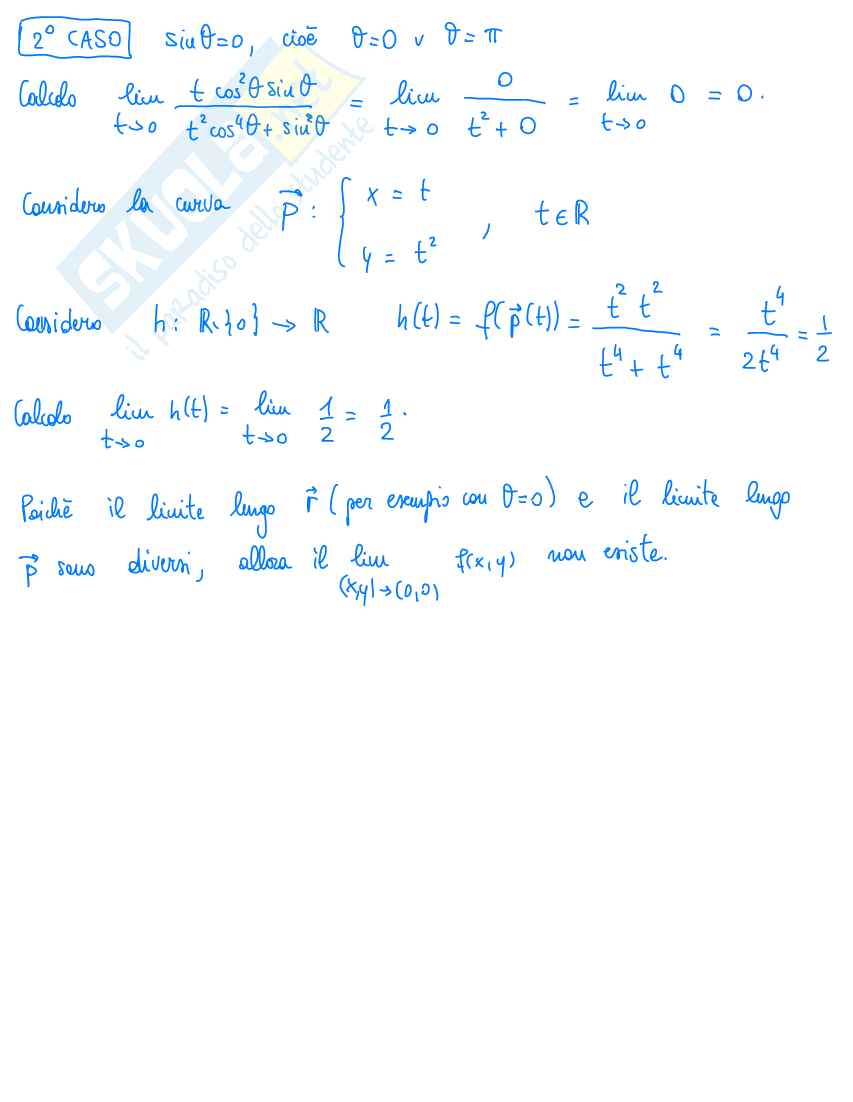 2° CASO sinθ=0, cioè θ=0 ∨ θ=π
Calcolo lim t→0 (t cos²θ sinθ)/(t² cos⁴θ + sin²θ) = lim t→0 0/(t²+0) = lim t→0 0 = 0.
Considero la curva p⃗ : { x = t , y = t² , t∈ℝ
Considero h: ℝ∖{0} → ℝ h(t) = f(p⃗(t)) = (t² t²)/(t⁴ + t⁴) = t⁴/2t⁴ = 1/2
Calcolo lim t→0 h(t) = lim t→0 1/2 = 1/2.
Poichè il limite lungo r⃗ (per esempio con θ=0) e il limite lungo
p⃗ sono diversi, allora il lim (x,y)→(0,0) f(x,y) non esiste.
SKUOLA.net
il paradiso dello studente